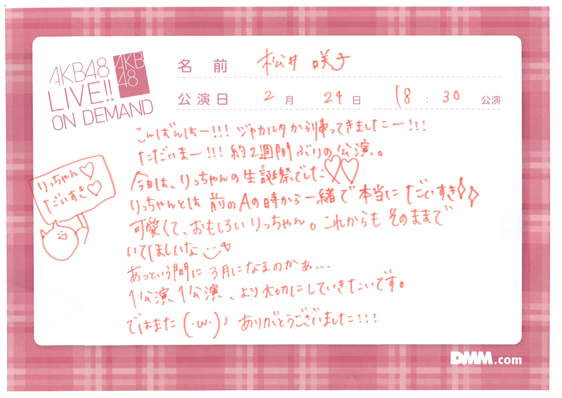 AKB48
LIVE!!
ON DEMAND
AKB
48
名前 松井 咲子
公演日 2月 24日 18:30 公演
こんばんはー!!! ジャカルタから帰ってきましたー!!!
ただいまー!!! 約2週間ぶりの公演。
今日は、りっちゃんの生誕祭でした♡♡
りっちゃんとは 前のAの時から一緒で本当に だいすき!♪
可愛くて、おもしろいりっちゃん。これからも そのままで
いてほしいな
あっという間に 3月になるのかぁ...
1公演、1公演、より大切にしていきたいです。
ではまた(・ω・)ノ ありがとうございました!!!
りっちゃん♡
だいすき♡
DMM.com